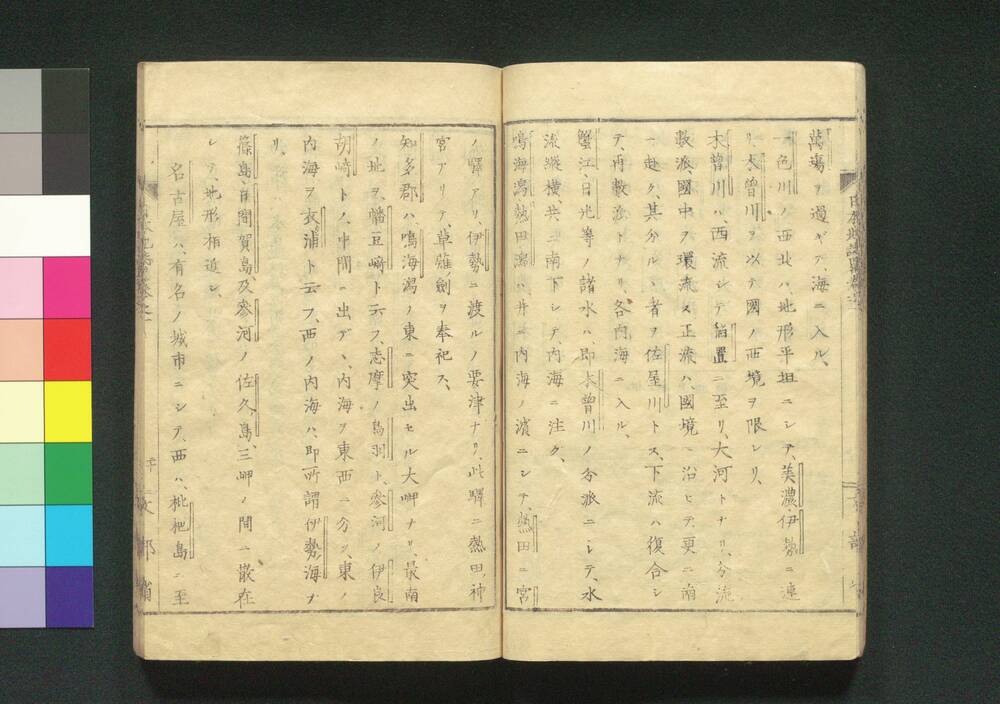 萬塲ヲ過ギテ、海ニ入ル、
一色川ノ西北ハ、地形平坦ニシテ、美濃、伊勢ニ連
リ、木曽川ヲ以テ國ノ西境ヲ限レリ、
木曽川ハ、西流シテ稲置ニ至リ、大河トナリ、分流
数派、國中ヲ環流ス、正流ハ、國境ニ沿ヒテ、更ニ南
ニ赴ク、其分ルヽ者ヲ佐屋川トス、下流ハ復合シ
テ、再数派トナリ、各内海ニ入ル、
蟹江、日光等ノ諸水ハ、即木曽川ノ分派ニシテ、水
流縦横、共ニ南下シテ、内海ニ注ク、
鳴海潟、熱田潟ハ、并ニ内海ノ濱ニシテ、熱田ニ宮
ノ驛アリ、伊勢ニ渡ルノ要津ナリ、此驛ニ熱田ノ神
宮アリテ、草薙ノ劍ヲ奉祀ス、
知多郡ハ、鳴海潟ノ東ニ突出セル大岬ナリ、最南
ノ地ヲ、幡豆崎ト云フ、志摩ノ鳥羽ト、参河ノ伊良
胡崎トノ、中間ニ出デヽ、内海ヲ東西ニ分ツ、東ノ
内海ヲ衣浦ト云フ、西ノ内海ハ、即所謂伊勢ノ海ナ
リ、
篠島、日間賀島、及参河ノ佐久ノ島、三岬ノ間ニ散在
シテ、地形相迫レ、
名古屋ハ、有名ノ城市ニシテ、西ハ、枇杷島ニ至
文部省